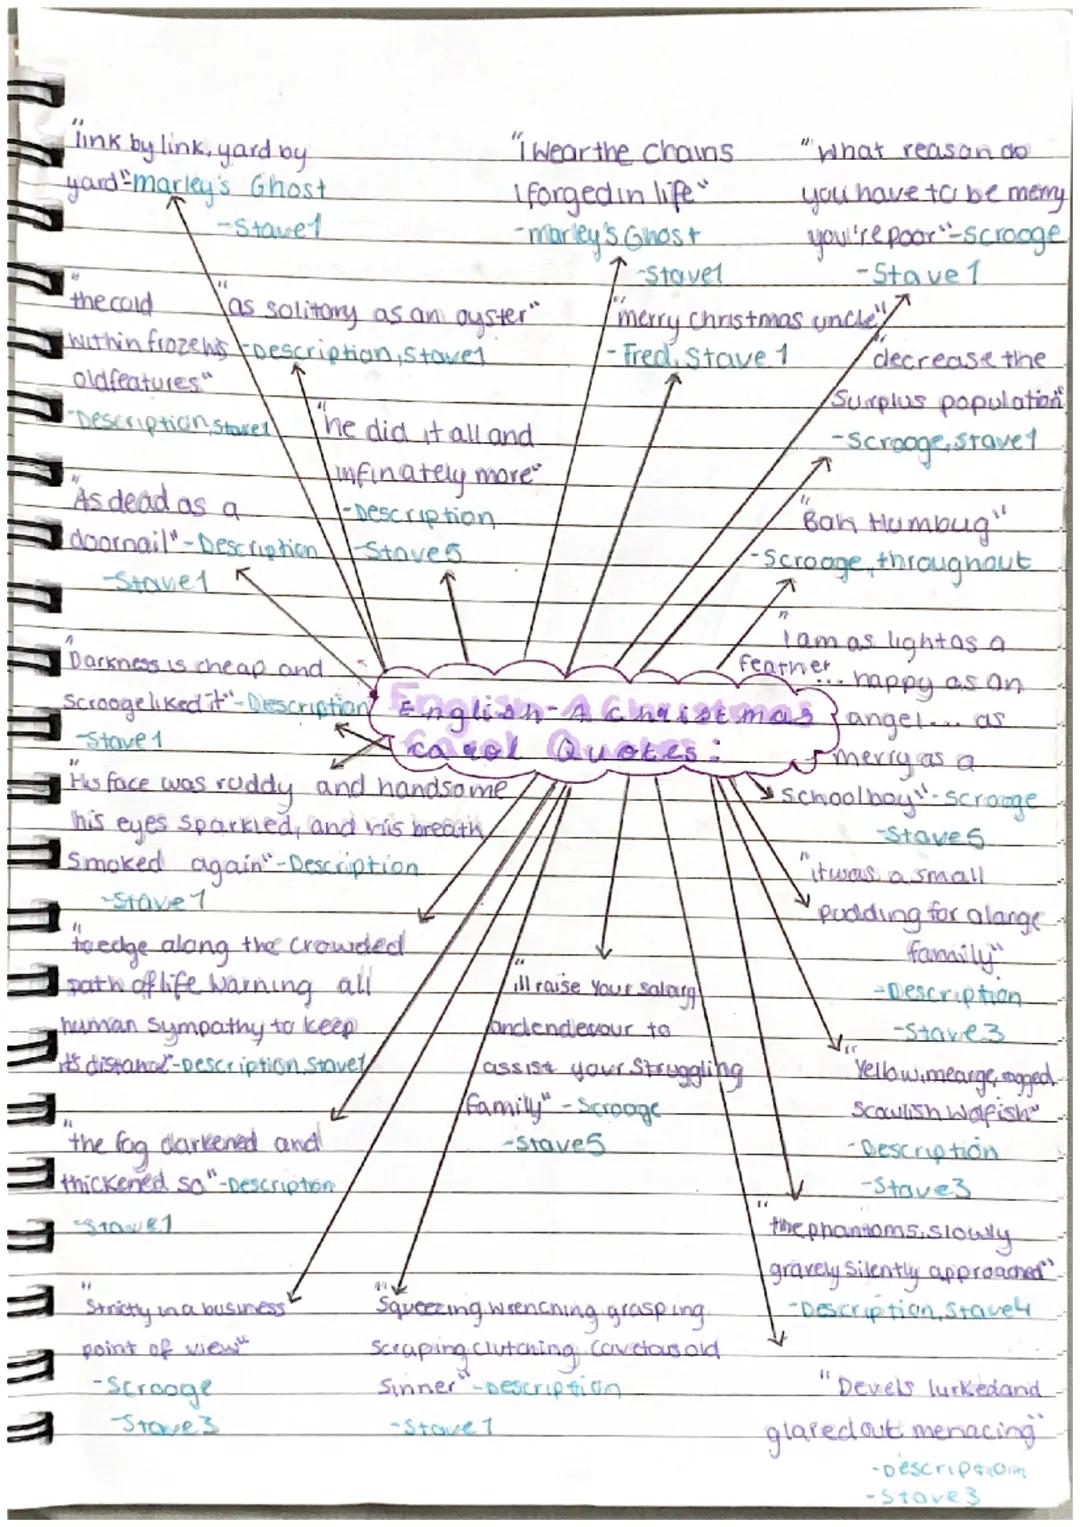 "link by link, yard by
yard"-marley's Ghost
-Stave1
"I wear the chains
I forged in life"
-marley's Ghost
-Stave1
"What reason do
you have to be merry
you're poor"-Scrooge
-Stave 1
"the cold
within froze his
old features"
-Description, Stave1
"as solitary as an oyster"
-Description, Stave1
"merry christmas uncle"
- Fred, Stave 1
"decrease the
Surplus population"
-Scrooge, Stave1
"he did it all and
infinately more"
-Description
-Stave5
"As dead as a
doornail"-Description
-Stave1
"Bah Humbug"
-Scrooge, throughout
"I am as light as a
feather... happy as an
angel... as
merry as a
schoolboy"-Scrooge
-Stave5
"Darkness is cheap and
Scrooge liked it"-Description
-Stave1
English-A Christmas
Carol Quotes:
"His face was ruddy and handsome
his eyes sparkled, and his breath
Smoked again"-Description
-Stave1
"it was a small
pudding for a large
family"
-Description
-Stave3
"to edge along the crowded
path of life warning all
human sympathy to keep
its distance"-Description, Stave1
"ill raise your salary
and endevour to
assist your Struggling
family" - Scrooge
-Stave5
"Yellow, mearge, ragged
Scowlish wolfish"
-Description
-Stave3
"the fog darkened and
thickened so"-Description
-Stave1
"the phantoms, slowly
gravely Silently approached"
-Description, Stave4
"Strictly in a business
point of view"
-Scrooge
-Stave3
"Squeezing, wrenching, grasping
Scraping, clutching, covetous old
Sinner"-Description
-Stave1
"Devels lurked and
glared out menacing"
-Description
-Stave3